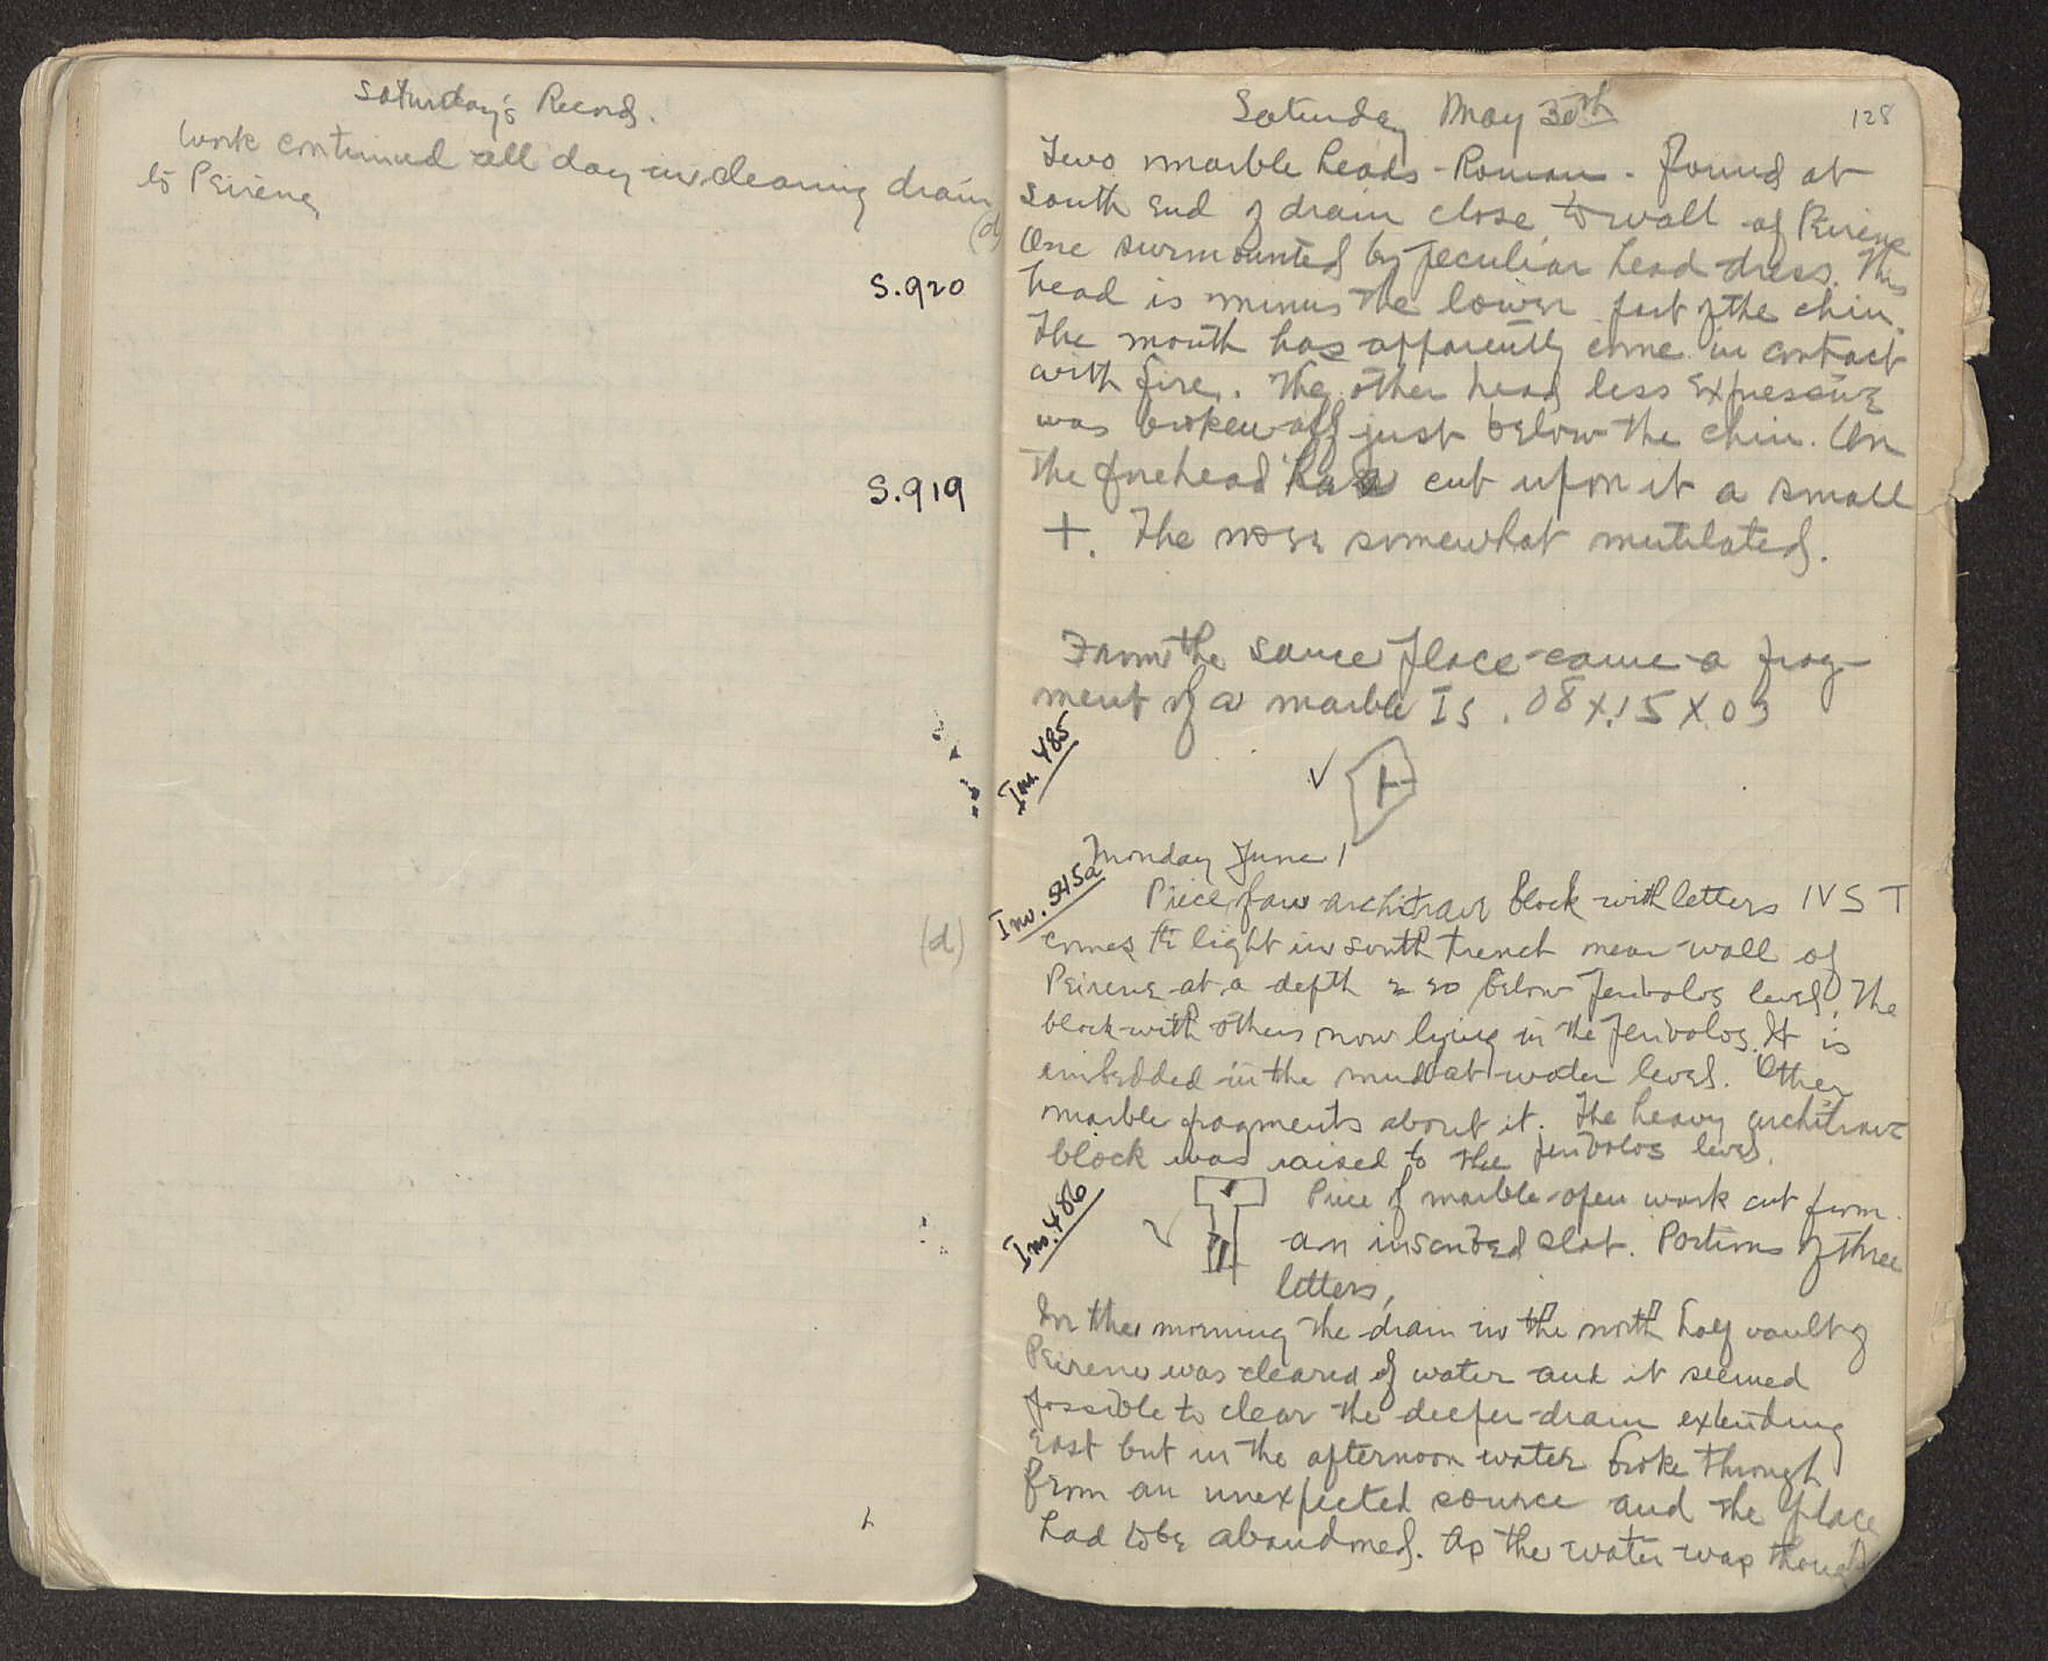 Saturday's Record.
Work continued all day in clearing drain
to Peirene
(d)
S.920
S.919
(d)
Saturday May 30th
128
Two marble heads - Roman - found at
south end of drain close to wall of Peirene
One surmounted by peculiar head dress. This
head is minus the lower part of the chin.
The mouth has apparently come in contact
with fire. The other head less expressive
was broken off just below the chin. On
the forehead has cut upon it a small
+. The nose somewhat mutilated.
From the same place came a frag-
ment of a marble Is .08 x .15 x .03
Inv. 485
Monday June 1
Inv. 545a
Piece of an architrave block with letters IVST
comes to light in south trench near wall of
Peirene at a depth 2 20 below peribolos level. The
block with others now lying in the peribolos. It is
embedded in the mud at water level. Other
marble fragments about it. The heavy architrave
block was raised to the peribolos level.
Inv. 486
Piece of marble open work cut from
an inscribed slab. Portions of three
letters,
In the morning the drain in the north half vault of
Peirene was cleared of water and it seemed
possible to clear the deeper drain extending
east but in the afternoon water broke through
from an unexpected source and the place
had to be abandoned. As the water was thought